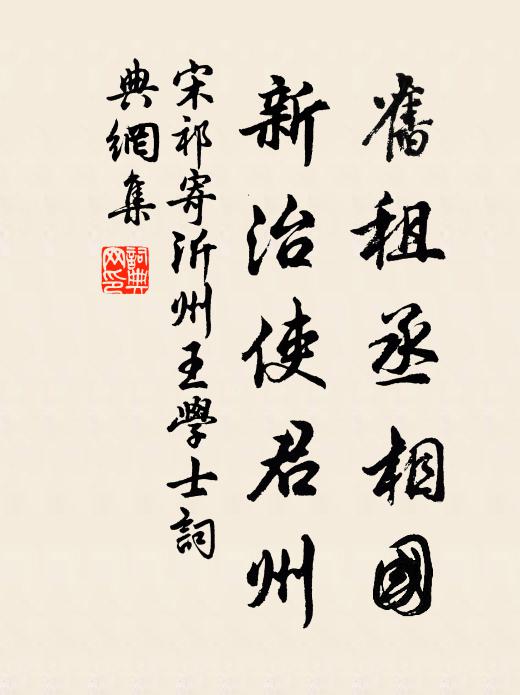 舊租丞相國
新治使君州
宋祁寄沂州王學士詞
典網集
詞典
网印